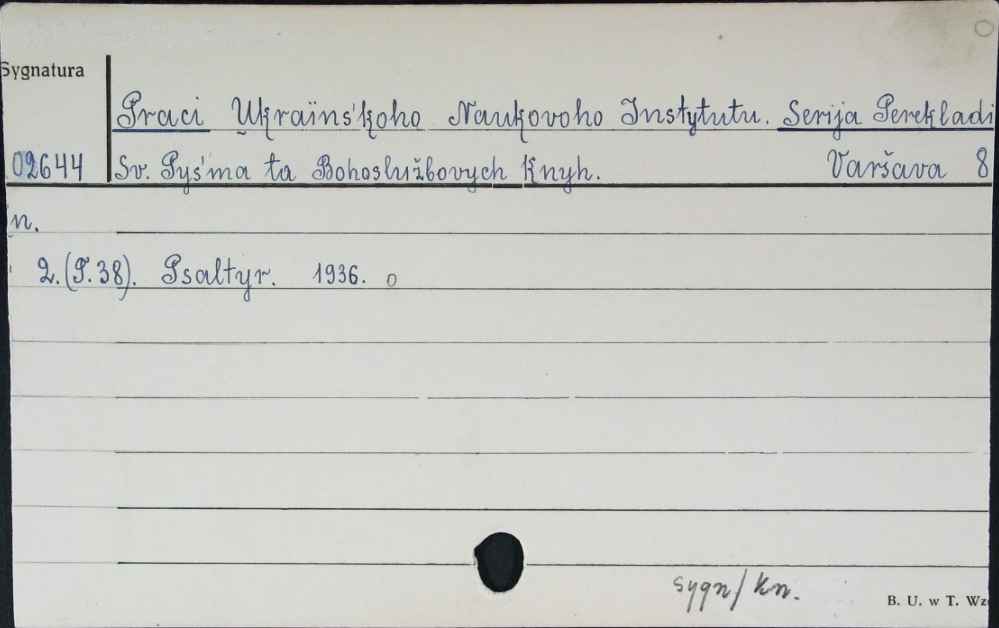 Sygnatura
Praci Ukraïns'koho Naukovoho Instytutu. Serija Perekladi
02644 Sv. Pyśma ta Bohoslužbovych Knyh. Varšava 8
n.
2. (T. 38). Psaltyr. 1936. o
sygn/kn.
B. U. w T. Wz